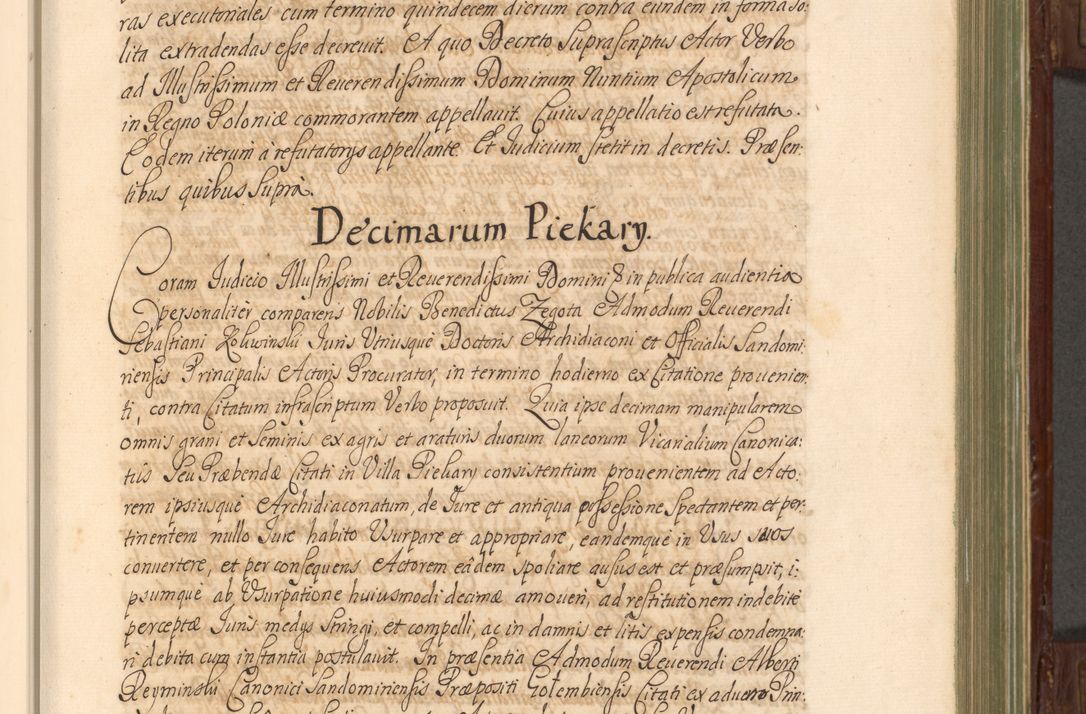 ras executoriales cum termino quindecem dierum contra eundem in forma so-
lita extradendas esse decrevit. A quo Decreto Suprascriptus Actor Verbo
ad Illustrissimum et Reuerendissimum Dominum Nuntium Apostolicum
in Regno Poloniæ commorantem appellauit. Cuius appellatio est refutata.
Eodem iterum à refutatorys appellante. Et Judicium stetit in decretis. Præsen:
tibus quibus Suprà.
Decimarum Piekary.
Coram Judicio Illustrissimi et Reuerendissimi Domini & in publica audientia
personalitèr comparens Nobilis Benedictus Zegota Admodum Reuerendi
Sebastiani Juris Vtriusquè Doctoris Archidiaconi et Officialis Sandomi-
riensis Principalis Actoris Procurator, in termino hodierno ex Citatione provenien
ti, contra Citatum infrascriptum Verbo proposuit. Quia ipse decimam manipularem
omnis grani et Seminis ex agris et araturis duorum laneorum Vicarialium Canonica:
tûs Seu Præbendæ Citati in Villa Piekary consistentium prouenientem ad Acto-
rem ipsiusquè Archidiaconatum, de Jure et antiqua possessione Spectantem et per-
tinentem nullo Jure habito Vsurpare et appropriare, eandemquè in Vsus suos
convertere, et per consequens Actorem eâdem spoliare ausus est et præsumpsit, i:
psumquè ab Vsurpatione huiusmodi decimæ amoueri, ad restitutionem indebitè
perceptæ Juris medys Stringi, et compelli, ac in damnis et litis expensis condemna:
ri debita cum instantia postulauit. In præsentia Admodum Reuerendi Alberti
Reyminski Canonici Sandomiriensis Præpositi Gotembiensis Citati ex aduerso Prin-